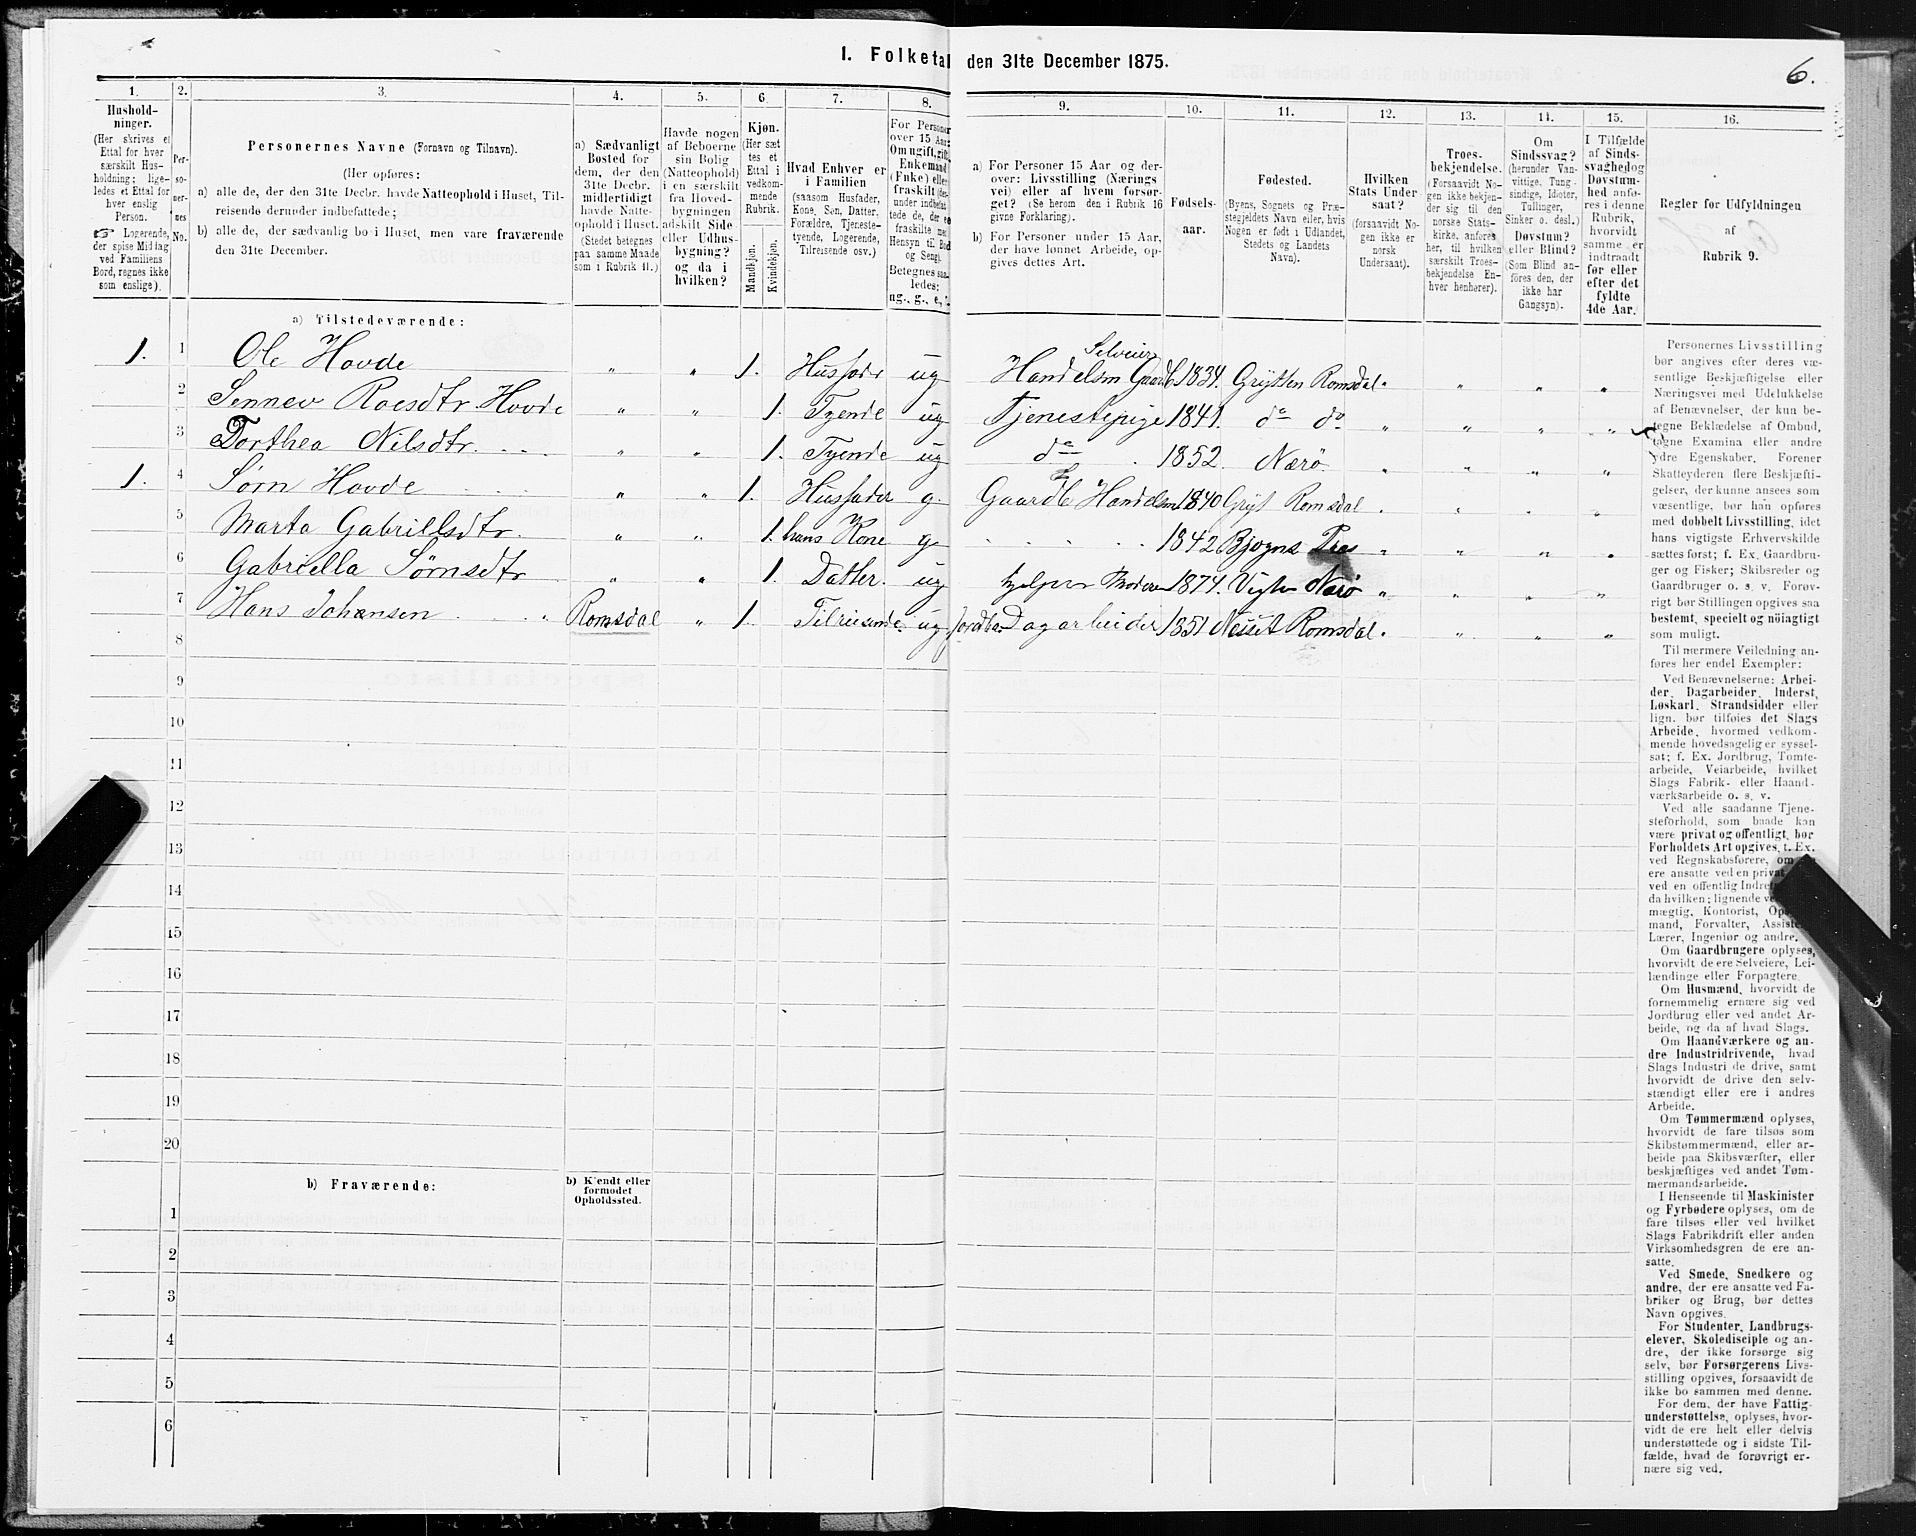 I. Folketal den 31te December 1875.
6.
1. 2. 3. 4. 5. 6. 7. 8. 9. 10. 11. 12. 13. 14. 15. 16.
Hushold-
ninger.
(Her skrives et
Ettal for hver
særskilt Hus-
holdning; lige-
ledes et Ettal for
hver enslig
Person.
☞ Logerende,
der spise Middag
ved Familiens
Bord, regnes ikke
som enslige).
Per-
so-
ner-
nes
No.
Personernes Navne (Fornavn og Tilnavn).
(Her opføres:
a) alle de, der den 31te Decbr. havde Natteophold i Huset, Til-
reisende derunder indbefattede;
b) alle de, der sædvanlig bo i Huset, men vare fraværende
den 31te December.
a) Sædvanligt
Bosted for
dem, der den
31te Decbr.
midlertidigt
havde Natte-
ophold i Huset.
(Stedet betegnes
paa samme Maade
som i Rubrik 11.)
Havde nogen
af Beboerne
sin Bolig
(Natteophold)
i en særskilt
fra Hoved-
bygningen
adskilt Side-
eller Udhus-
bygning?
og da i
hvilken?
Kjøn.
(Her sæt-
tes et
Ettal i
vedkom-
mende
Rubrik.
Mandkjøn.
Kvindekjøn.
Hvad Enhver er
i Familien
(saasom Husfader,
Kone, Søn, Datter,
Forældre, Tjeneste-
tyende, Logerende,
Tilreisende osv.)
For Personer
over 15 Aar:
Om ugift, gift,
Enkemand
(Enke) eller
fraskilt (der-
under indbefat-
tede de, der ere
fraskilte med
Hensyn til Bord
og Seng).
Betegnes saa-
ledes:
ug., g., e., f.
a) For Personer 15 Aar og der-
over: Livsstilling (Nærings-
vei) eller af hvem forsør-
get? (Se herom den i Rubrik 16
givne Forklaring).
b) For Personer under 15 Aar,
der have lønnet Arbeide, op-
gives dettes Art.
Fødsels-
aar.
Fødested.
(Byens, Sognets og Præ-
stegjeldets Navn eller, hvis
Nogen er født i Udlandet,
Stedets og Landets
Navn).
Hvilken
Stats Under-
saat?
(forsaavidt No-
gen ikke er
norsk
Undersaat).
Troes-
bekjendelse.
(Forsaavidt No-
gen ikke bekjen-
der sig til den
norske Stats-
kirke, anføres
her, til hvilken
særskilt Troes-
bekjendelse En-
hver henhører).
Om
Sindssvag?
(herunder Van-
vittige, Tung-
sindige, Idioter,
Tullinger,
Sinker o. desl.)
Døvstum?
eller Blind?
(Som Blind an-
føres den, der
ikke har
Gangsyn).
I Tilfælde
af Sinds-
svaghed og
Døvstum-
hed anfø-
res i denne
Rubrik,
hvorvidt
samme er
indtraadt
før eller
efter det
fyldte
4de Aar.
Regler for Udfyldningen
af
Rubrik 9.
a) Tilstedeværende:
Selveier
1. 1 Ole Hovde " " 1. Husfader ug Handelsm Gaardb 1834. Grytten Romsdal " " " "
2 Sennev Roesdtr Hovde " " 1. Tyende ug Tjenestepige 1841. do do " " " "
3 Dorthea Nilsdtr. " " 1. Tyende ug do 1852. Nærø " " " "
1. 4 Sørn Hovde " " 1. Husfader g. Gaardb Handelsm 1840 Gryt Romsdal " " " "
5 Marta Gabrillsdtr. " " 1. hans Kone g. 1842 Bjøgns " " " "
6 Gabriella Sørnsdtr " " 1. Datter. ug hjelper Moderen 1874. Vigten Nærø " " " "
7 Hans Johansen " Romsdal " 1. Tilreisende ug jordbr. Dagarbeider 1851 Nesset Romsdal " " " "
8
9
10
11
12
13
14
15
16
17
18
19
20
b) Fraværende:
b) Kjendt eller
formodet
Opholdssted.
1
2
3
4
5
6
Personernes Livsstilling
bør angives efter deres væ-
sentlige Beskjæftigelse eller
Næringsvei med Udelukkelse
af Benævnelser, der kun be-
tegne Beklædelse af Ombud,
tagne Examina eller andre
ydre Egenskaber. Forener
Skatteyderen flere Beskjæfti-
gelser, der kunne ansees som
væsentlige, bør han opføres
med dobbelt Livsstilling, idet
hans vigtigste Erhvervskilde
sættes først; f. Ex. Gaardbru-
ger og Fisker; Skibsreder og
Gaardbruger o. s. v. Forøv-
rigt bør Stillingen opgives saa
bestemt, specielt og nøiagtigt
som muligt.
Til nærmere Veiledning an-
føres her endel Exempler:
Ved Benævnelserne: Arbei-
der, Dagarbeider, Inderst,
Løskarl, Strandsidder eller
lign. bør tilføies det Slags
Arbeide, hvormed vedkom-
mende hovedsagelig er syssel-
sat; f. Ex. Jordbrug, Tomte-
arbeide, Veiarbeide, hvilket
Slags Fabrik- eller Haand-
værksarbeide o. s. v.
Ved alle saadanne Tjene-
steforhold, som baade kan
være privat og offentligt, bør
Forholdets Art opgives, f. Ex.
ved Regnskabsførere, om
ere ansatte ved en privat
ved en offentlig
da hvilken; lignende
mægtig, Kontorist,
mand, Forvalter,
Lærer, Ingeniør og andre.
Om Gaardbrugere oplyses,
hvorvidt de ere Selveiere, Lei-
lændinge eller Forpagtere.
Om Husmænd, hvorvidt de
fornemmelig ernære sig ved
Jordbrug eller ved andet Ar-
beide, og da af hvad Slags.
Om Haandværkere og an-
dre Industridrivende, hvad
Slags Industri de drive, samt
hvorvidt de drive den selv-
stændigt eller ere i andres
Arbeide.
Om Tømmermænd oplyses,
hvorvidt de fare tilsøs som
Skibstømmermænd, eller ar-
beide paa Skibsværfter, eller
beskjæftiges ved andet Tøm-
mermandsarbeide.
I Henseende til Maskinister
og Fyrbødere oplyses, om de
fare tilsøs eller ved hvilket
Slags Fabrikdrift eller anden
Virksomhedsgren de ere an-
satte.
Ved Smede, Snedkere og
andre, der ere ansatte ved Fa-
briker og Brug, bør dettes
Navn opgives.
For Studenter, Landbrugs-
elever, Skoledisciple og an-
dre, der ikke forsørge sig
selv, bør Forsørgerens Livs-
stilling opgives, forsaavidt de
ikke bo sammen med denne.
For dem, der have Fattig-
understøttelse, oplyses, hvor-
vidt de ere helt eller delvis
understøttede og i sidste Til-
fælde, hvad de forøvrigt er-
nære sig ved.